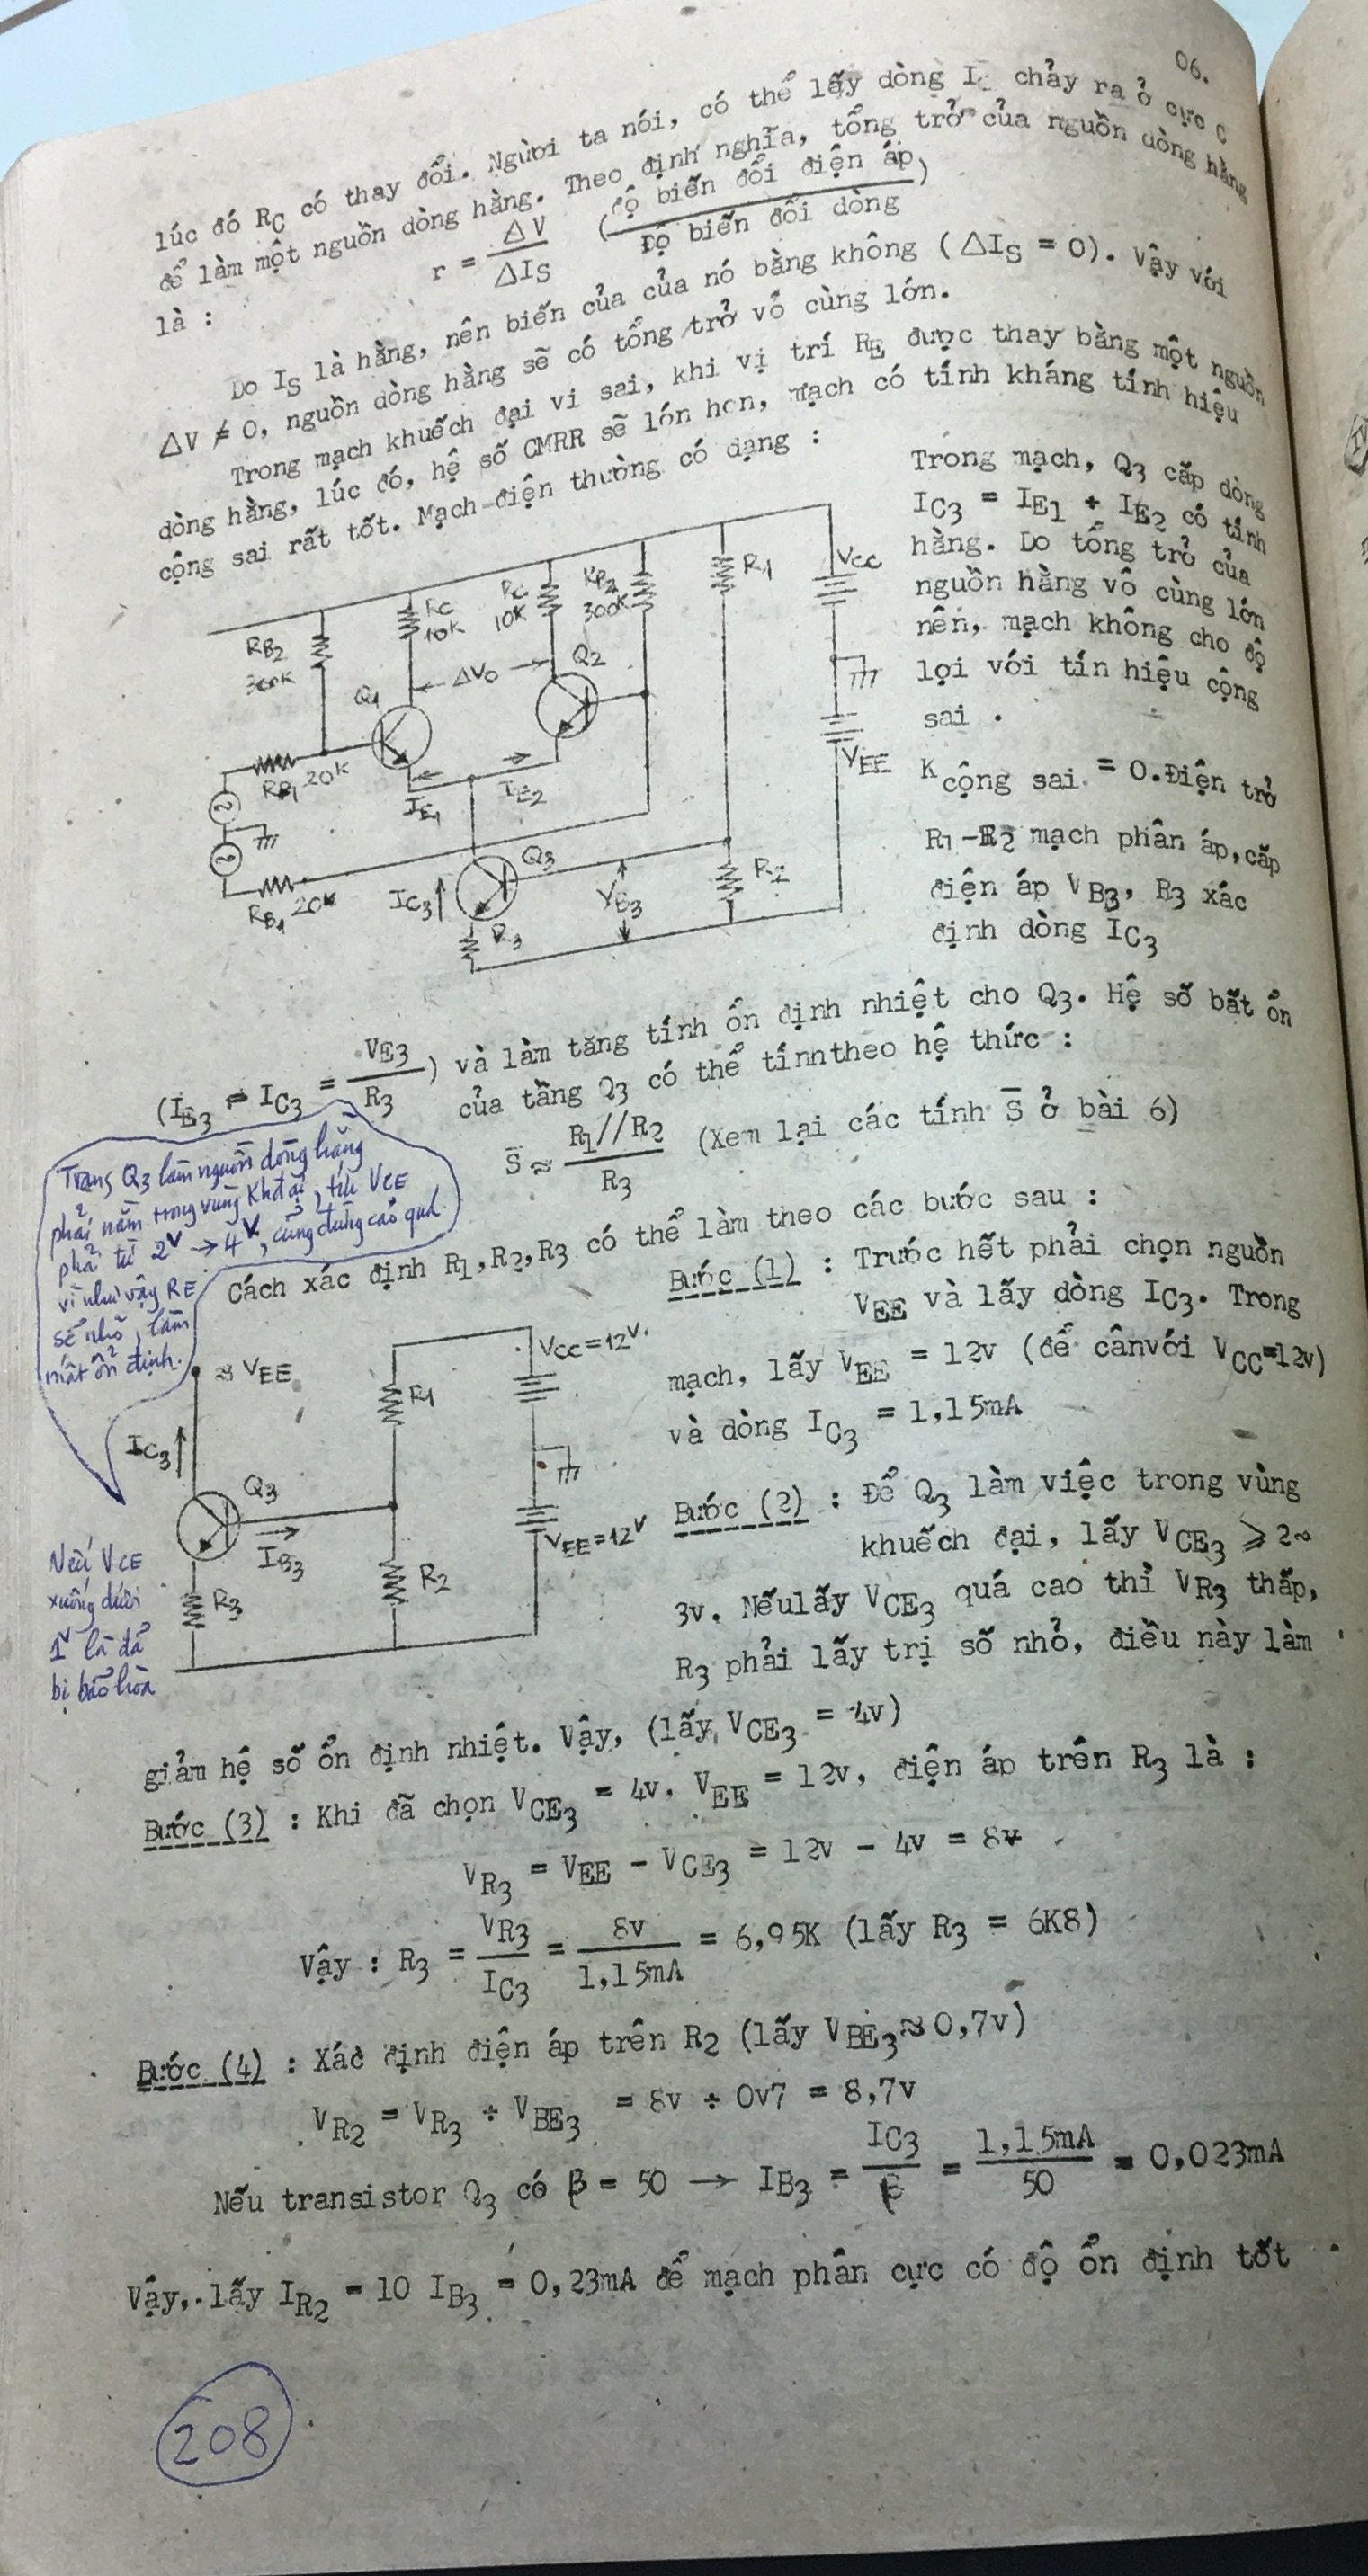 06.
lúc đó RC có thay đổi. Người ta nói, có thể lấy dòng IC chảy ra ở cực C
để làm một nguồn dòng hằng. Theo định nghĩa, tổng trở của nguồn dòng hằng
là : r = ΔV / ΔIS (độ biến đổi điện áp / Độ biến đổi dòng)
Do IS là hằng, nên biến của của nó bằng không (ΔIS = 0). Vậy với
ΔV ≠ 0, nguồn dòng hằng sẽ có tổng trở vô cùng lớn.
Trong mạch khuếch đại vi sai, khi vị trí RE được thay bằng một nguồn
dòng hằng, lúc đó, hệ số CMRR sẽ lớn hơn, mạch có tính kháng tính hiệu
cộng sai rất tốt. Mạch điện thường có dạng :
RB2
300K
RC
10K
RC
10K
RB2
300K
R1
VCC
Q1
ΔVO
Q2
RB1 20K
IE1
IE2
VEE
Q3
IC3
VB3
R2
RB1 20K
R3
Trong mạch, Q3 cấp dòng
IC3 = IE1 + IE2 có tính
hằng. Do tổng trở của
nguồn hằng vô cùng lớn
nên, mạch không cho độ
lợi với tín hiệu cộng
sai .
K cộng sai = 0.Điện trở
R1-R2 mạch phân áp,cấp
điện áp VB3, R3 xác
định dòng IC3
(IE3 ≠ IC3 = VE3 / R3) và làm tăng tính ổn định nhiệt cho Q3. Hệ số bất ổn
của tầng Q3 có thể tínhtheo hệ thức :
S̄ ≈ R1//R2 / R3 (Xem lại các tính S̄ ở bài 6)
Trans Q3 làm nguồn dòng hằng
phải nằm trong vùng Khđại, tức VCE
phải từ 2V → 4V, cũng đừng cao quá
vì như vậy RE
sẽ nhỏ, làm
mất ổn định.
Cách xác định R1,R2,R3 có thể làm theo các bước sau :
≈ VEE
IC3
Q3
IB3
R3
R1
R2
VCC=12V.
VEE=12V
Nếu VCE
xuống dưới
1V là đã
bị bão hòa
Bước (1) : Trước hết phải chọn nguồn
VEE và lấy dòng IC3. Trong
mạch, lấy VEE = 12v (để cânvới VCC=12v)
và dòng IC3 = 1,15mA
Bước (2) : Để Q3 làm việc trong vùng
khuếch đại, lấy VCE3 ⩾ 2∾
3v. Nếulấy VCE3 quá cao thì VR3 thấp,
R3 phải lấy trị số nhỏ, điều này làm
giảm hệ số ổn định nhiệt. Vậy, (lấy VCE3 = 4v)
Bước (3) : Khi đã chọn VCE3 = 4v. VEE = 12v, điện áp trên R3 là :
VR3 = VEE - VCE3 = 12v - 4v = 8v
Vậy : R3 = VR3 / IC3 = 8v / 1,15mA = 6,95K (lấy R3 = 6K8)
Bước (4) : Xác định điện áp trên R2 (lấy VBE3≈0,7v)
VR2 = VR3 ÷ VBE3 = 8v ÷ 0v7 = 8,7v
Nếu transistor Q3 có β = 50 → IB3 = IC3 / β = 1,15mA / 50 = 0,023mA
Vậy, lấy IR2 = 10 IB3 = 0,23mA để mạch phân cực có độ ổn định tốt
208